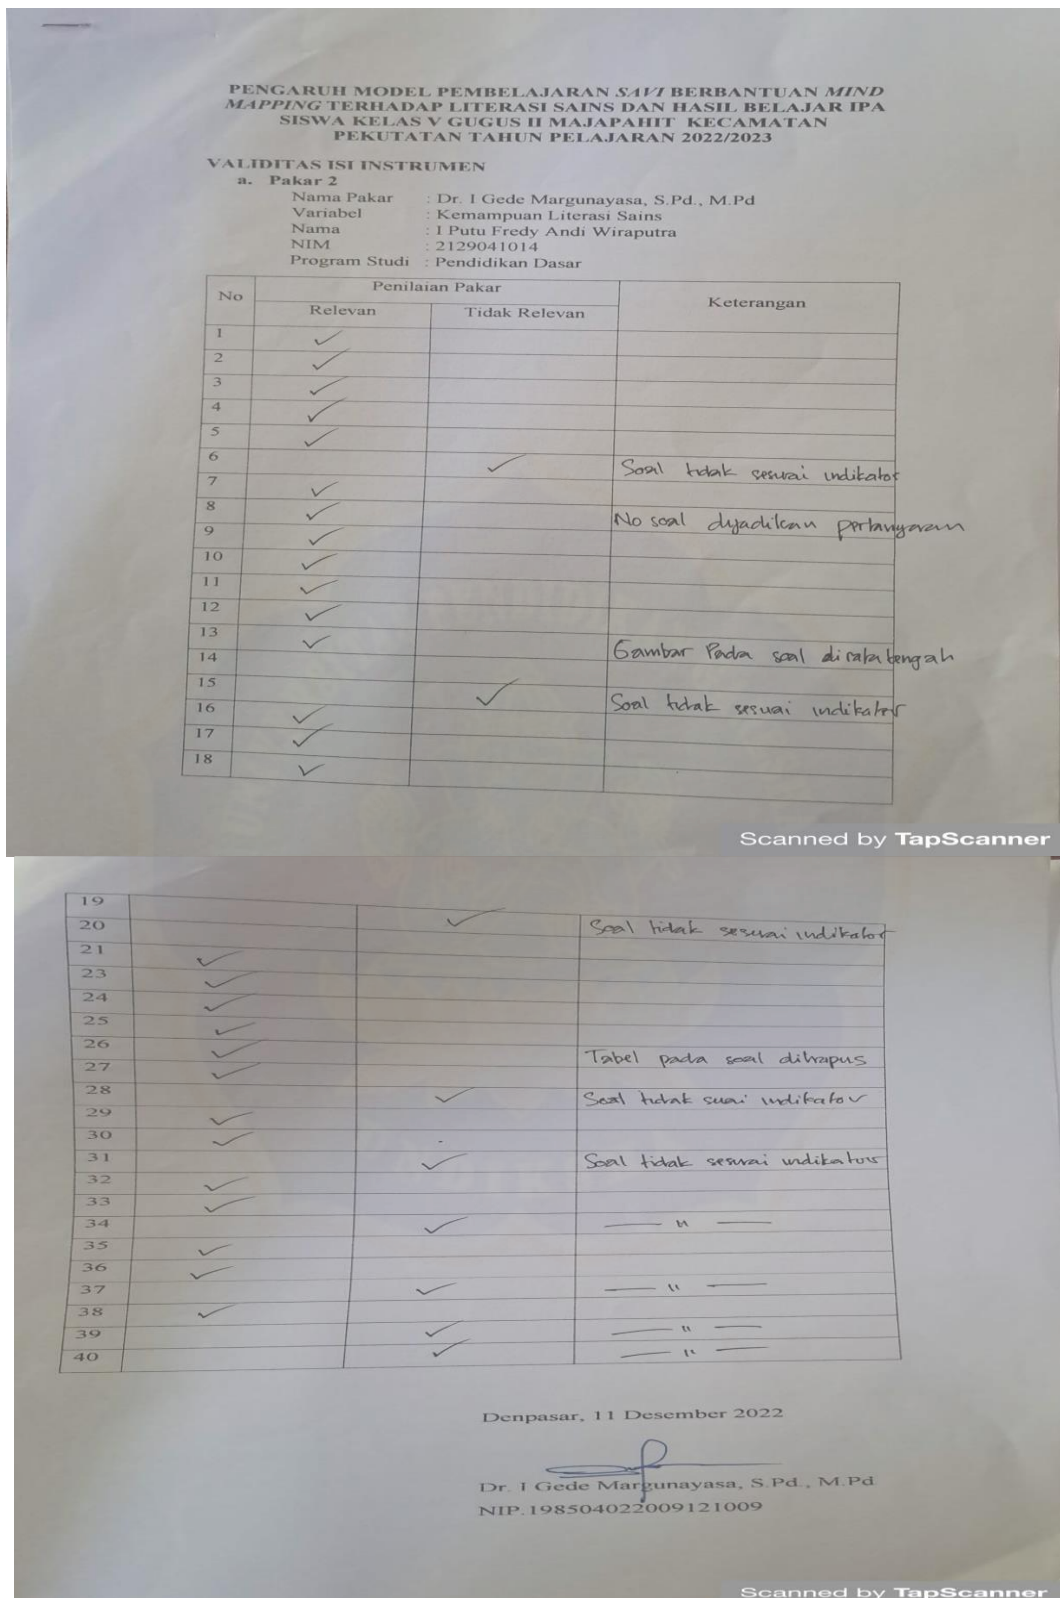 PENGARUH MODEL PEMBELAJARAN SAVI BERBANTUAN MIND
MAPPING TERHADAP LITERASI SAINS DAN HASIL BELAJAR IPA
SISWA KELAS V GUGUS II MAJAPAHIT KECAMATAN
PEKUTATAN TAHUN PELAJARAN 2022/2023
VALIDITAS ISI INSTRUMEN
a. Pakar 2
Nama Pakar : Dr. I Gede Margunayasa, S.Pd., M.Pd
Variabel : Kemampuan Literasi Sains
Nama : I Putu Fredy Andi Wiraputra
NIM : 2129041014
Program Studi : Pendidikan Dasar
No Penilaian Pakar Keterangan
Relevan Tidak Relevan
1 ✓
2 ✓
3 ✓
4 ✓
5 ✓
6 ✓ Soal tidak sesuai indikator
7 ✓
8 ✓ No soal dijadikan pertanyaan
9 ✓
10 ✓
11 ✓
12 ✓
13 ✓ Gambar Pada soal dirata tengah
14
15 ✓ Soal tidak sesuai indikator
16 ✓
17 ✓
18 ✓
Scanned by TapScanner
19
20 ✓ Soal tidak sesuai indikator
21 ✓
23 ✓
24 ✓
25 ✓
26 ✓ Tabel pada soal dihapus
27 ✓
28 ✓ Soal tidak suai indikator
29 ✓
30 ✓
31 ✓ Soal tidak sesuai indikator
32 ✓
33 ✓
34 ✓ — " —
35 ✓
36 ✓
37 ✓ — " —
38 ✓
39 ✓ — " —
40 ✓ — " —
Denpasar, 11 Desember 2022
Dr. I Gede Margunayasa, S.Pd., M.Pd
NIP.198504022009121009
Scanned by TapScanner